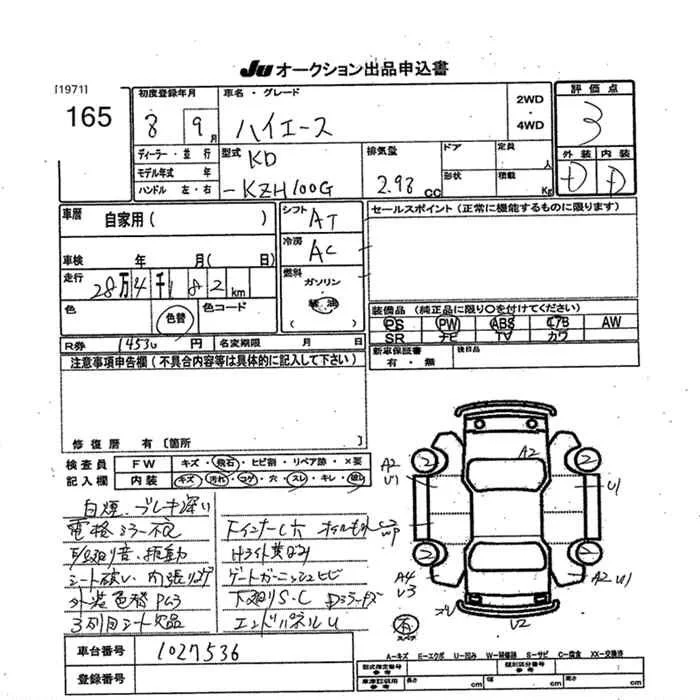 Ju オークション出品申込書
[1971]
165
初度登録年月
8 9月
車名・グレード
ハイエース
2WD
・
4WD
評価点
3
ディーラー・並行
モデル年式 年
ハンドル 左・右
型式 KD
-KZH100G
排気量
2.98 cc
ドア
定員 人
形状
積載 Kg
外装 内装
D D
車歴 自家用( )
車検 年 月( 日)
走行 28万4千182km
色 色替 色コード
シフト AT
冷房 AC
燃料
ガソリン
軽油
( )
セールスポイント(正常に機能するものに限ります)
装備品(純正品に限り○を付けてください)
PS PW ABS エアB AW
SR ナビ TV カワ
R券 14530円 名変期限 月 日
新車保証書 後日品
有・無
注意事項申告欄(不具合内容等は具体的に記入して下さい)
修復歴 有〔箇所
検査員
記入欄
FW キズ・飛石・ヒビ割・リペア跡・×要
内装 キズ・汚れ・コゲ・穴・スレ・キレ・破レ
白煙、ブレーキ深い
電格ミラー不良
下回り音・振動
シート破レ、内張リワレ
外装色替PG3
3列目シート欠品
FインナーC穴
Hライト黄ばみ
ゲートガーニッシュヒビ
下廻りS.C Dミラーキズ
エンドパネルU
A2
A2
U1
U1
2
2
2
2
A4
U3
A2 U1
U2
有
スペア
A=キズ E=エクボ U=凹み W=補修跡 S=サビ C=腐食 XX=交換済
車台番号 1027536
登録番号
型式指定番号
参考
類別区分番号
参考
車庫証明用
参考
長さ cm 幅 cm 高さ cm